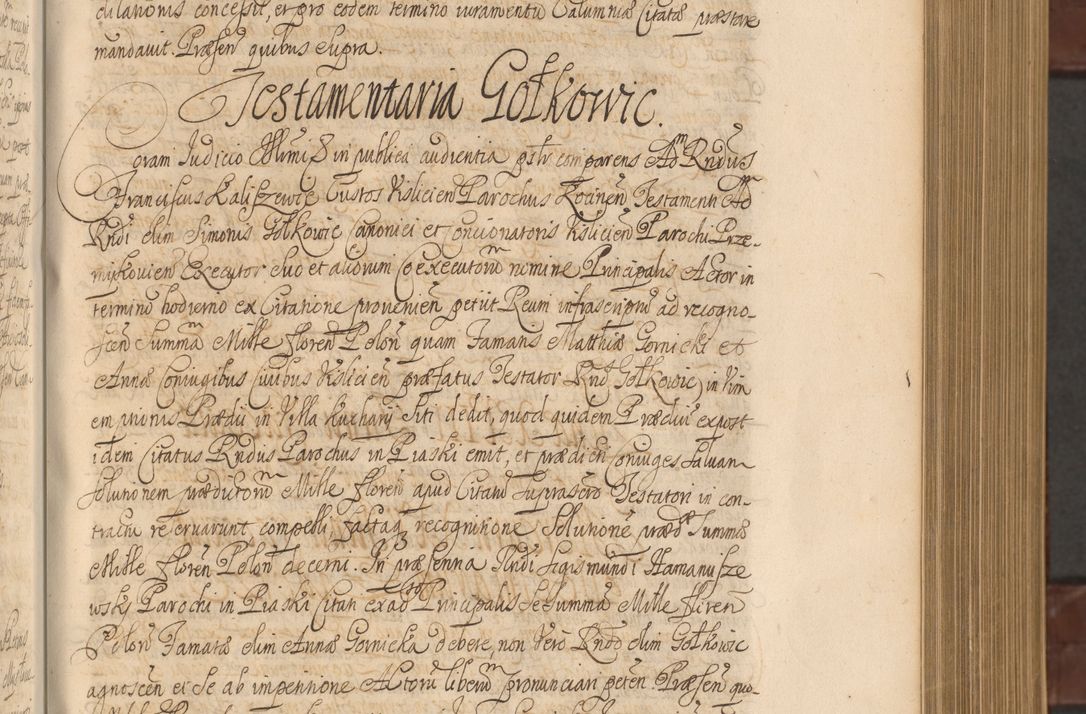 dilationis concessit, et pro eodem termino iuramentū Calumniæ Citatæ præstare
mandavit. Præsen̄ quibus supra.
Testamentaria Gołkowic.
Coram Judicio Illmi S in publica audientia psltr comparens Adm Rndus
Franciscus Kaliszewic Custos Kislicien̄ Parochus Kocinen̄ Testamenti Adm
Rndi olim Simonis Gołkowic Canonici et Concionatoris Kislicien̄ Parochi Prze-
mikovien̄ Executor suo et aliorum Coexecutorū nomine Principalis Actor in
termino hodierno ex Citatione provenien̄ petiit Reum infrascriptū ad recogno-
scen̄ Summā Mille floren̄ Polon̄ quam Famatis Matthiæ Gornicki et
Annæ Coniugibus Civibus Kislicien̄ præfatus Testator Rnd Gołkowic, in vim
em ptionis Prædii in Villa Kucharÿ siti dedit, quod quidem Prædiū expost
idem Citatus Rndus Parochus in Piaski emit, et prædicti Coniuges salvam
solutionem prædictorū Mille floren̄ apud Citatū suprascro Testatori in con-
tractu reservarunt, compelli, factaq recognitione Solutionē præd Summæ
Mille floren̄ Polon̄ decerni. In præsentia Rndi Sigismundi Hamanusze
wski Parochi in Piaski Citati ex ad Principalis se Summā Mille floren̄
Polon̄ Famatæ olim Annæ Gornicka debere, non vero Rndo olim Gołkowic
agnoscen̄ et se ab impetitione Actorū liberū pronunciari peten̄. Præsen̄ quo-